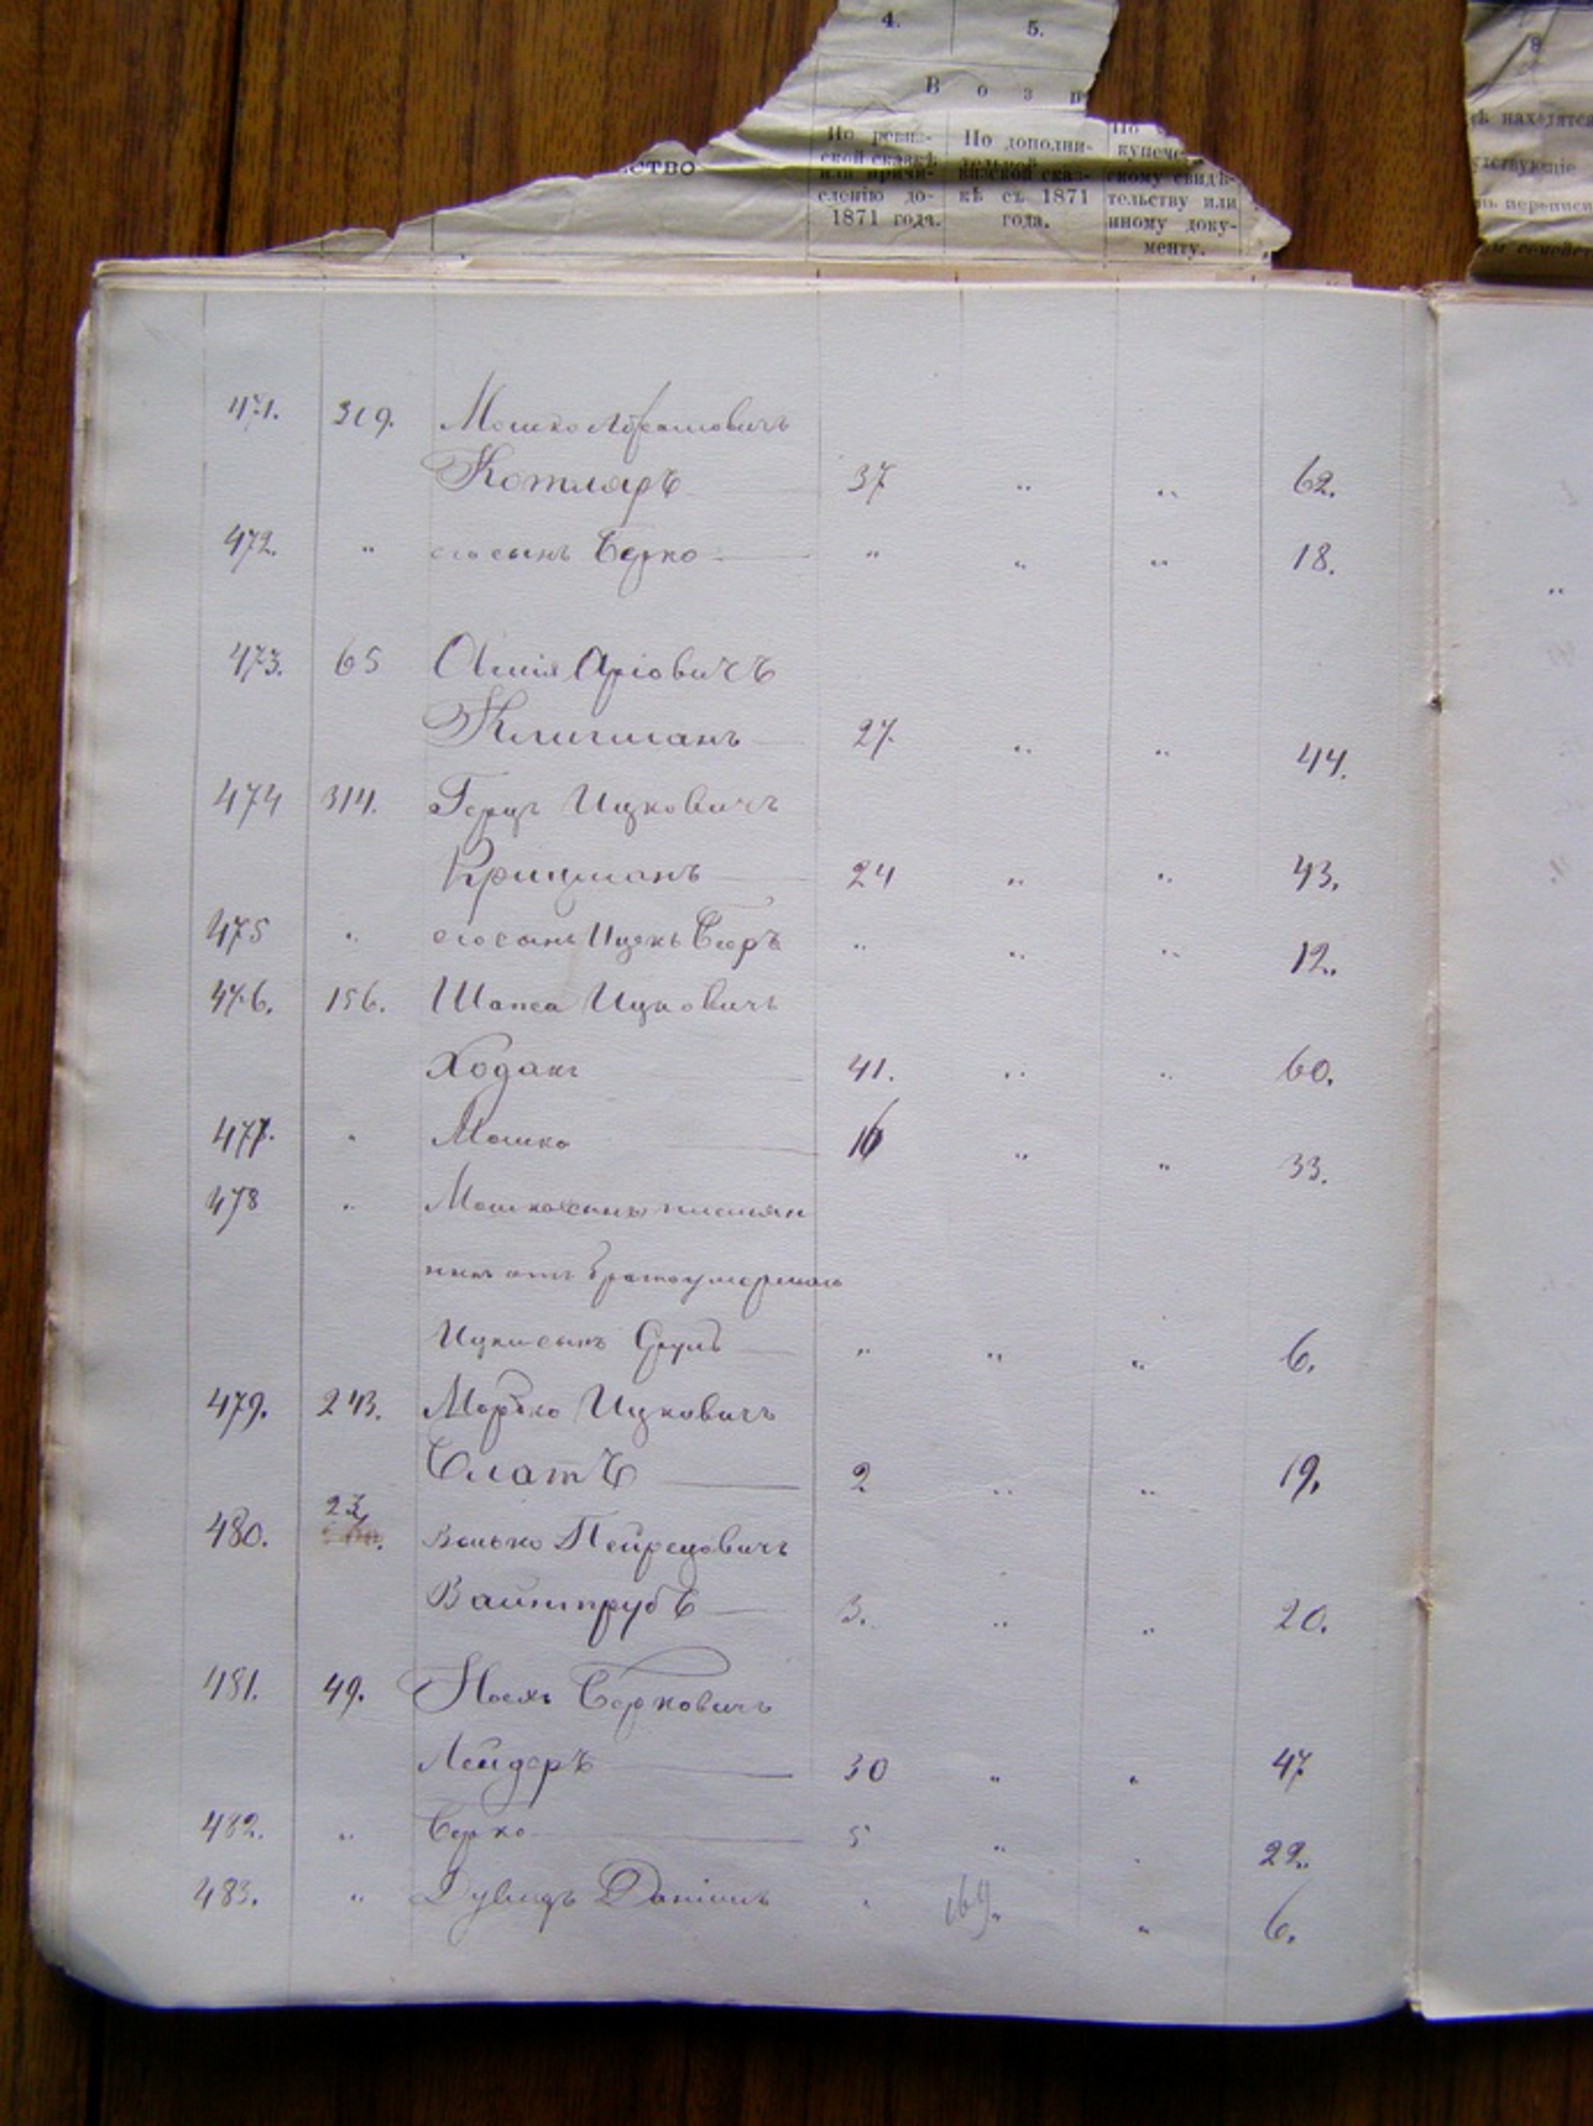 4. 5. 8
В о з р
ство
По ревиз-
ской сказкѣ
или причи-
сленію до-
1871 года.
По дополни-
тельной
визской сказ-
кѣ съ 1871
года.
По
купече-
скому свидѣ-
тельству или
иному доку-
менту.
ѣ находятся
утствующіе
переписи
471. 319. Мошко Абрамовичъ
Котляръ 37 „ „ 62.
472. „ его сынъ Берко „ „ „ 18.
473. 65 Аріовичъ
Клигманъ 27. „ „ 44.
474 314. Герцъ Ицковичъ
Крицманъ 24 „ „ 43.
475 „ его сынъ Ицекъ Беръ „ „ „ 12.
476. 156. Шапса Ицковичъ
Ходакъ 41. „ „ 60.
477. „ Мошко 16 „ „ 33.
478 „ Мошко племян
никъ отъ брата умершаго
Ицки сынъ Сруль „ „ „ 6.
479. 243. Мордко Ицковичъ
Слатъ 2 „ „ 19.
23.
480. Волько Пейрецовичъ
Вайнтрубъ 3. „ „ 20.
481. 49. Берковичъ
Лейдеръ 30 „ „ 47
482. „ Берко 5 „ „ 22.
483. „ Дувидъ Даніилъ „ „ „ 6.
169.